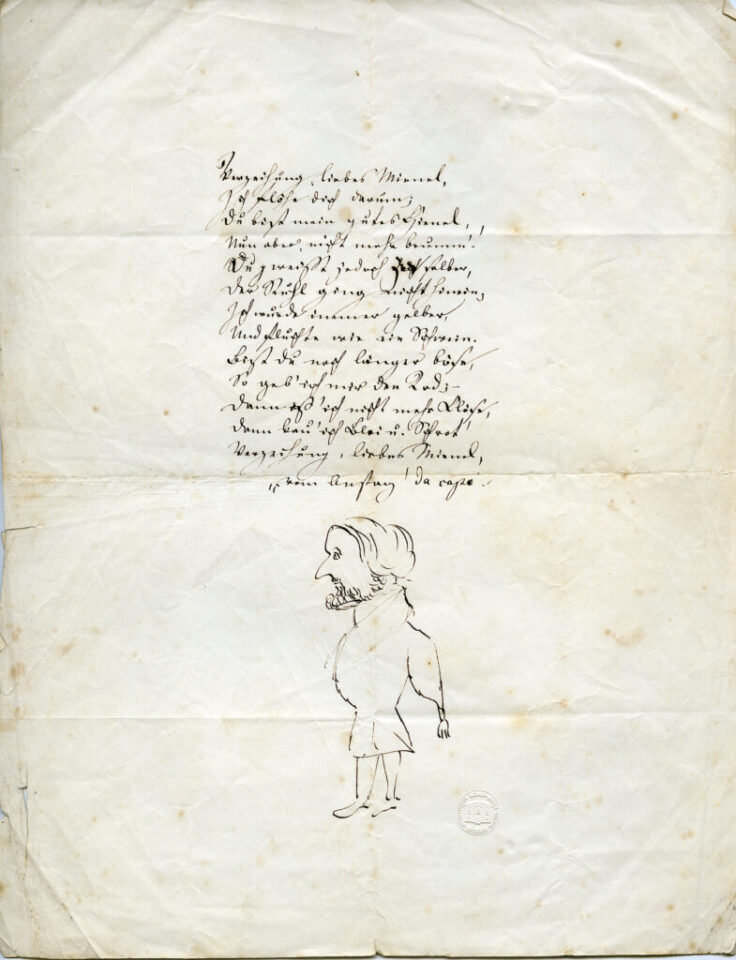 Verzeihung, liebes Mienel,
Ich flehe dich darum;
Du bist mein gutes Bienel,
Nun aber, nicht mehr brumm'!
Du weisst jedoch selber,
Der Stuhl ging nicht hinein;
Ich wurde immer gelber,
Und fluchte wie ein Schwein.
Bist Du noch länger böse,
So geb' ich mir den Tod;–
Dann ess' ich nicht mehr Klöse,
Dann kau' ich Blei u. Schrot
Verzeihung, liebes Mienel,
vom Anfang! da capo.